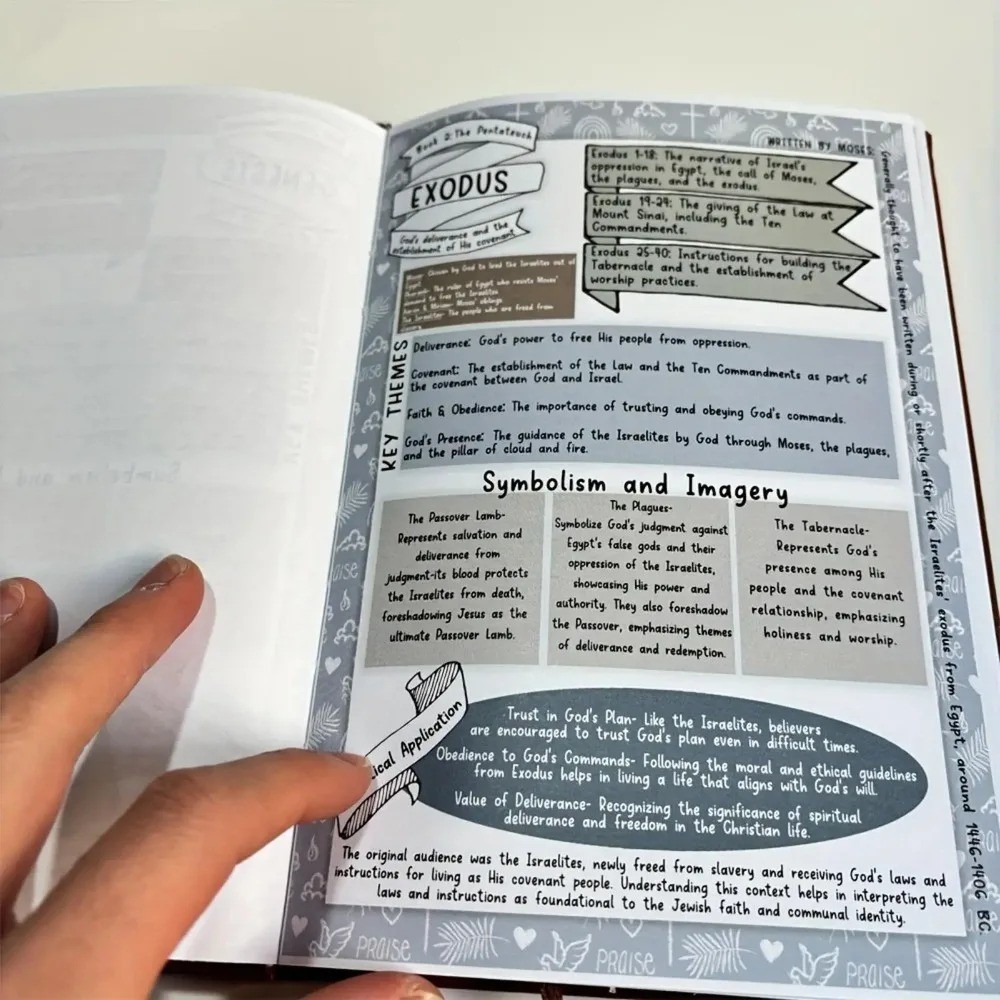 Book 2: The Pentateuch
EXODUS
God's deliverance and the
establishment of His covenant
WRITTEN BY MOSES:
Generally thought to have been written during or shortly after the Israelites' exodus from Egypt, around 1446-1406 BC
Exodus 1-18: The narrative of Israel's
oppression in Egypt, the call of Moses,
the plagues, and the exodus.
Exodus 19-24: The giving of the Law at
Mount Sinai, including the Ten
Commandments.
Exodus 25-40: Instructions for building the
Tabernacle and the establishment of
worship practices.
Moses- Chosen by God to lead the Israelites out of
Egypt
Pharaoh- The ruler of Egypt who resists Moses'
demand to free the Israelites
Aaron & Miriam- Moses' siblings
The Israelites- The people who are freed from
slavery
KEY THEMES
Deliverance: God's power to free His people from oppression.
Covenant: The establishment of the Law and the Ten Commandments as part of
the covenant between God and Israel.
Faith & Obedience: The importance of trusting and obeying God's commands.
God's Presence: The guidance of the Israelites by God through Moses, the plagues,
and the pillar of cloud and fire.
Symbolism and Imagery
The Passover Lamb-
Represents salvation and
deliverance from
judgment-its blood protects
the Israelites from death,
foreshadowing Jesus as the
ultimate Passover Lamb.
The Plagues-
Symbolize God's judgment against
Egypt's false gods and their
oppression of the Israelites,
showcasing His power and
authority. They also foreshadow
the Passover, emphasizing themes
of deliverance and redemption.
The Tabernacle-
Represents God's
presence among His
people and the covenant
relationship, emphasizing
holiness and worship.
ical Application
Trust in God's Plan- Like the Israelites, believers
are encouraged to trust God's plan even in difficult times.
Obedience to God's Commands- Following the moral and ethical guidelines
from Exodus helps in living a life that aligns with God's will.
Value of Deliverance- Recognizing the significance of spiritual
deliverance and freedom in the Christian life.
The original audience was the Israelites, newly freed from slavery and receiving God's laws and
instructions for living as His covenant people. Understanding this context helps in interpreting the
laws and instructions as foundational to the Jewish faith and communal identity.
PRAISE
PRAISE
PRAISE